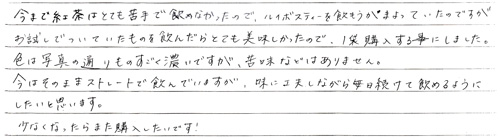 今まで紅茶はとても苦手で飲めなかったので、ルイボスティーを飲もうか まよっていたのですが
お試しでついていたものを飲んだらとても美味しかったので、1袋購入する事にしました。
色は写真の通りものすごく濃いですが、苦味などはありません。
今はそのままストレートで飲んでいますが、味に工夫しながら毎日続けて飲めるように
したいと思います。
少なくなったらまた購入したいです!